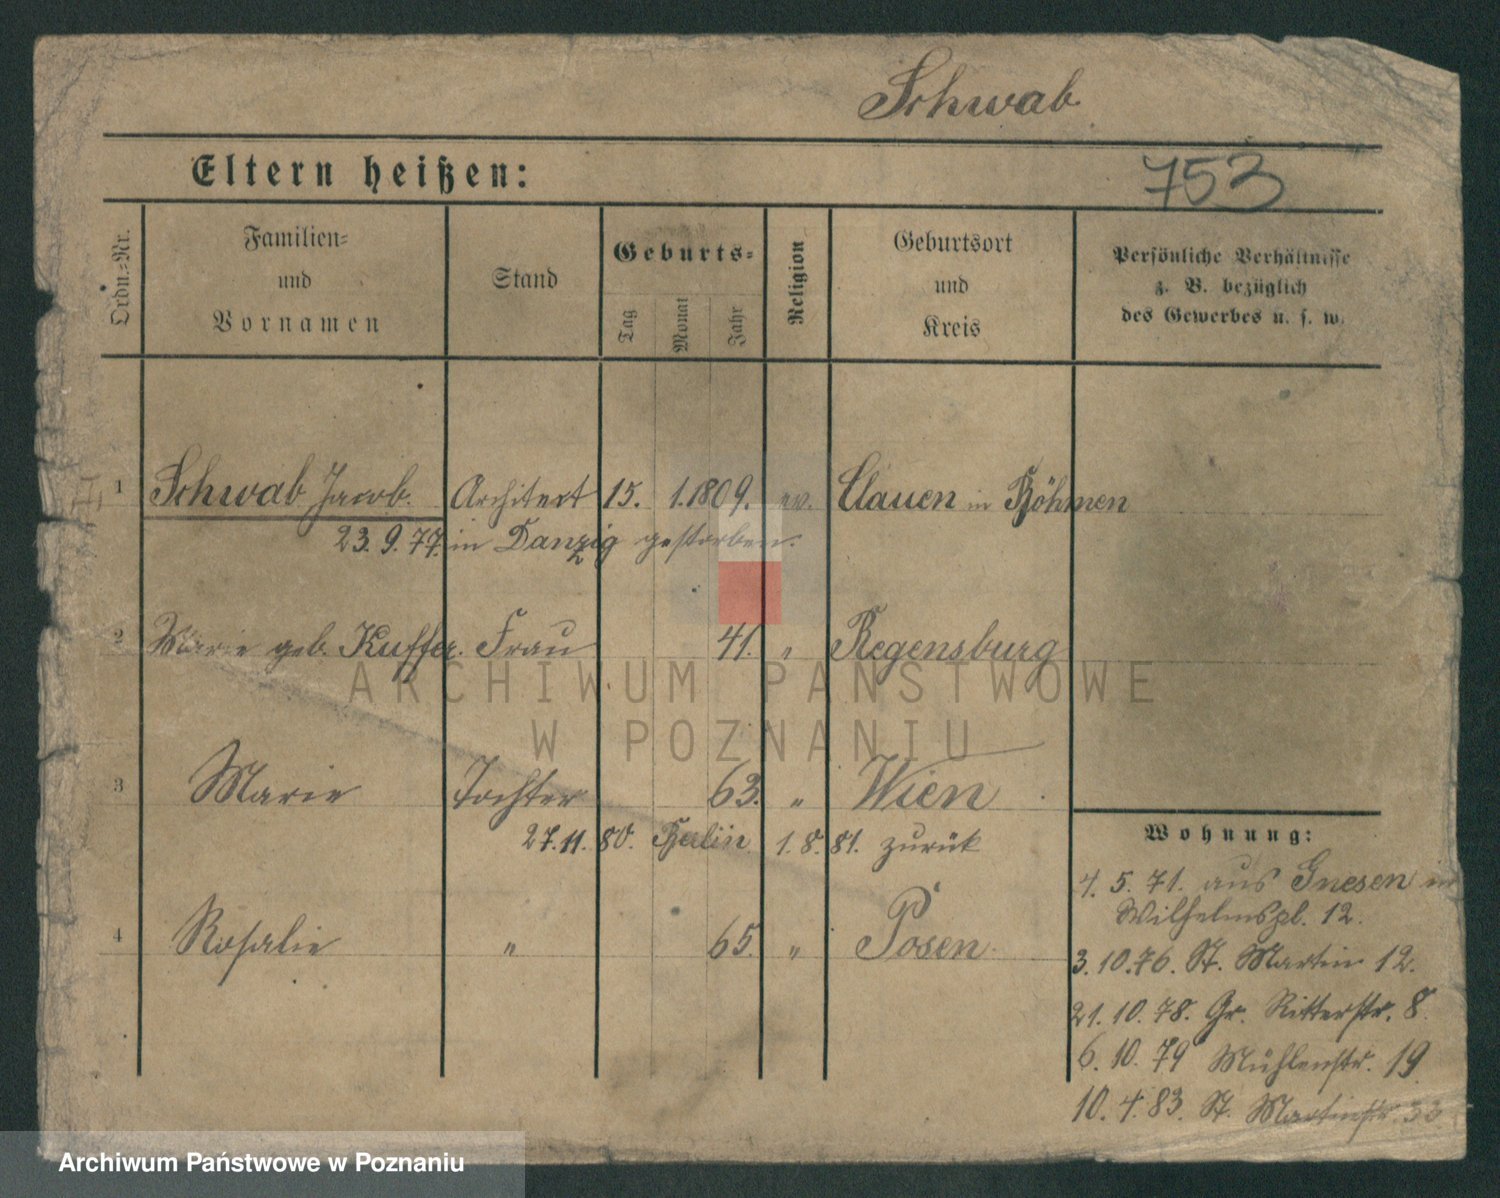 Schwab
Eltern heißen:
753
Ordn.-Nr.
Familien-
und
Vornamen
Stand
Geburts-
Tag
Monat
Jahr
Religion
Geburtsort
und
Kreis
Persönliche Verhältnisse
z. B. bezüglich
des Gewerbes u. s. w.
1 Schwab Jacob. Architect 15. 1. 1809. ev. Clauen in Böhmen
23. 9. 77. in Danzig gestorben.
2 Marie geb. Kuffer. Frau 41. " Regensburg
3 Marie Tochter 63. " Wien
27. 11. 80. Berlin 1. 8. 81. zurük
4 Rosalie " 65. " Posen.
Wohnung:
4. 5. 71. aus Gnesen in
Wilhelmspl. 12.
3. 10. 76. St. Martin 12.
21. 10. 78. Gr. Ritterstr. 8.
6. 10. 79 Mühlenstr. 19
10. 4. 83. St. Martinstr. 33
ARCHIWUM PAŃSTWOWE
W POZNANIU
Archiwum Państwowe w Poznaniu